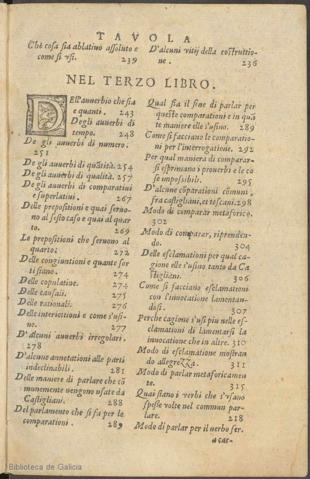 TAVOLA
Chè cosa sia ablatiuo assoluto e
come si vsi. 239
D'alcuni vitij della cõstruttio-
ne. 236
NEL TERZO LIBRO.
DEll'auuerbio che sia
e quanti. 243
Degli auuerbi di
tempo. 248
De gli auuerbi di numero.
251
De gli auuerbi di quãtità. 254
De gli auuerbi di qualità. 257
De gli auuerbi di comparatiui
e superlatiui. 267
Delle prepositioni e quai seruo-
no al sesto caso e quai al quar
to. 269
Le prepositioni che seruono al
quarto: 272
Delle congiuntioni e quante sor
ti siano. 274
Delle copulatiue. 274
Delle causali. 275
Delle rationali. 276
Delle interiettioni e come s'usi-
no. 277
D'alcuni auuerbi irregolari.
278
D'alcune annotationi alle parti
indeclinabili. 281
Delle maniere di parlare che cõ
munemente uengono usate da
Castigliani. 288
Del parlamento che si fa per le
comparationi. 289
Qual sia il fine di parlar per
queste comparationi e in quã
te maniere elle s'usino. 289
Come si facciano le comparatio-
ni per l'interrogatione. 292
Per qual maniera di comparar-
si esprimano i prouerbi e le co
se impossibili. 295
D'alcune cõparationi cõmuni
fra castigliani, et toscani. 298
Modo di comparar metaforico.
302
Modo di comparar, riprenden-
do. 304
Delle esclamationi per qual ca-
gione elle s'usino tanto da Ca
stigliani. 306
Come si facciano esclamationi
con l'inuocatione lamentan-
dosi. 307
Perche cagione s'usi piu nelle es-
clamationi di lamentarsi la
inuocatione che in altre. 310
Modo di esclamatione mostran
do allegrezza. 311
Modo di parlar metaforicamen
te. 315
Quai siano i verbi che s'usano
spesse volte nel commun par-
lare. 218
Modo di parlar per il uerbo ser.
acar-
Biblioteca de Galicia